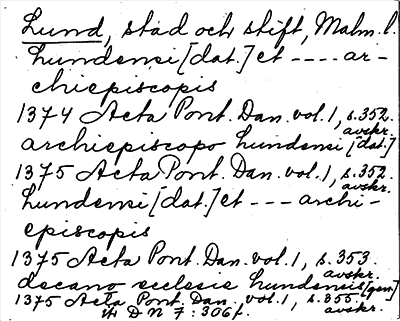 Lund, stad och stift, Malm. l.
Lundensi [dat.] et ---- ar-
chiepiscopis
1374 Acta Pont. Dan. vol. 1, s. 352.
avskr.
archiepiscopo Lundensi [dat.]
1375 Acta Pont. Dan. vol. 1, s. 352.
avskr.
Lundensi [dat.] et --- archi-
episcopis
1375 Acta Pont. Dan. vol. 1, s. 353.
avskr.
decano ecclesie Lundensis [gen.]
1375 Acta Pont. Dan. vol. 1, s. 355
avskr.
tr D N 7: 306 f.